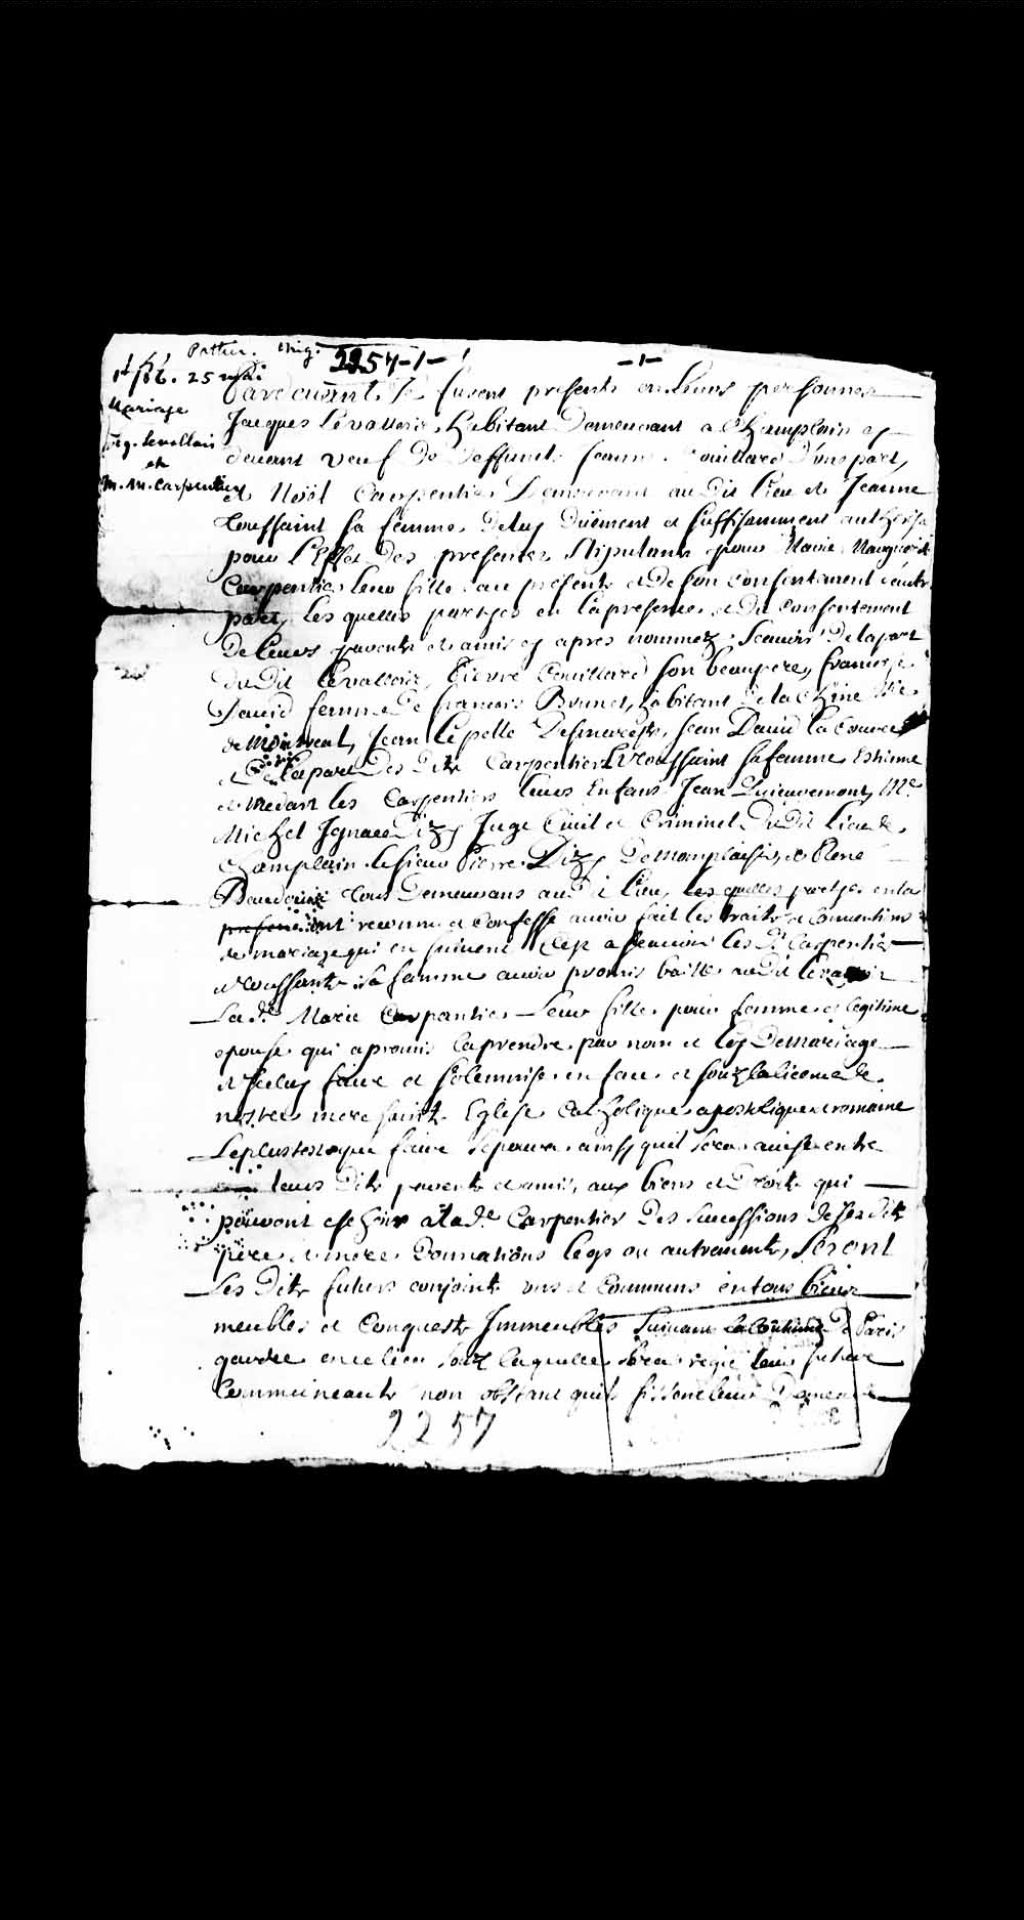 2257-1-
-1-
25 mai
Mariage
Jaq. Levallois
et
M. M. Carpentier
furent presents en leurs personnes
Jacques Levallois, habitant Demeurant a Champlain cy
devant veuf de deffuncte Jeanne Couillard d'une part,
et Noël Carpentier Demeurant au Dit lieu et Jeanne
Toussaint sa femme, de luy Düement et suffisamment authorisé
pour l'Effet Des presentes stipulant pour Marie Marguerite
Carpentier leur fille au presente et de son consentement d'autre
part, les quelles partyes en la presence et du consentement
De leurs parents et amis cy apres nommez, Scauoir De la part
du Dit Levallois, Pierre Couillard son beaupere, francoise
Dauid femme De francois Brunet, habitant De la Chine
de Montreal, Jean Lepelle Desmarests, Jean Dauid la Course
et De la part Des Dits Carpentier et Toussaint sa femme, Estienne
et Medart les Carpentiers leurs Enfans Jean Me
Michel Ignace Dizy Juge Ciuil et Criminel Du Dit lieu de
Champlain, le sieur Pierre Dizy De Momplaisir, et René
Baudouin tous Demeurans au Dit lieu, les quelles partyes en la
presence ont reconnu et confessé auoir fait les traité et Conuentions
de mariage qui en suiuent C'est a scauoir les Dt Carpentier
et Toussaint sa femme auoir promis bailler au Dit Levallois
La de Marie Carpentier leur fille pour femme et legitime
epouse qui a promis la prendre par nom et loy De mariage
et iceluy faire et solemniser en face et souz la licence de
nostre mere sainte Eglise Catholique apostolique et romaine
Le plus tost que faire se poura ainsy quil sera auisé entre
leurs Dits parents et amis, aux biens et Droits qui
peuuent escheoir a la de Carpentier Des successions de ses Dits
pere et mere, Donnations legs ou autrement, Seront
Les Dits futurs conjoints uns et Communs en tous biens
meubles et Conquests Immeubles Suiuant la Coutume De Paris
gardée en ce lieu souz laquelle sera regie leur future
Communeauté non obstant quils fissent leur Demeure
2257